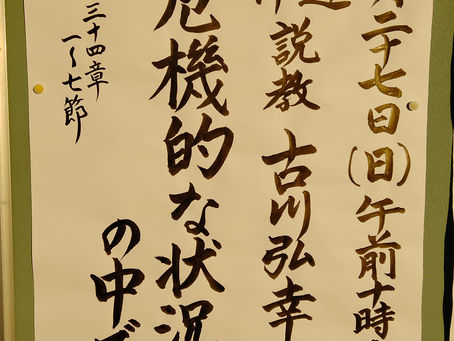 二十七日(日)午前十時
説教 古川弘幸
危機的な状況
の中で
三十四章
一〜七節